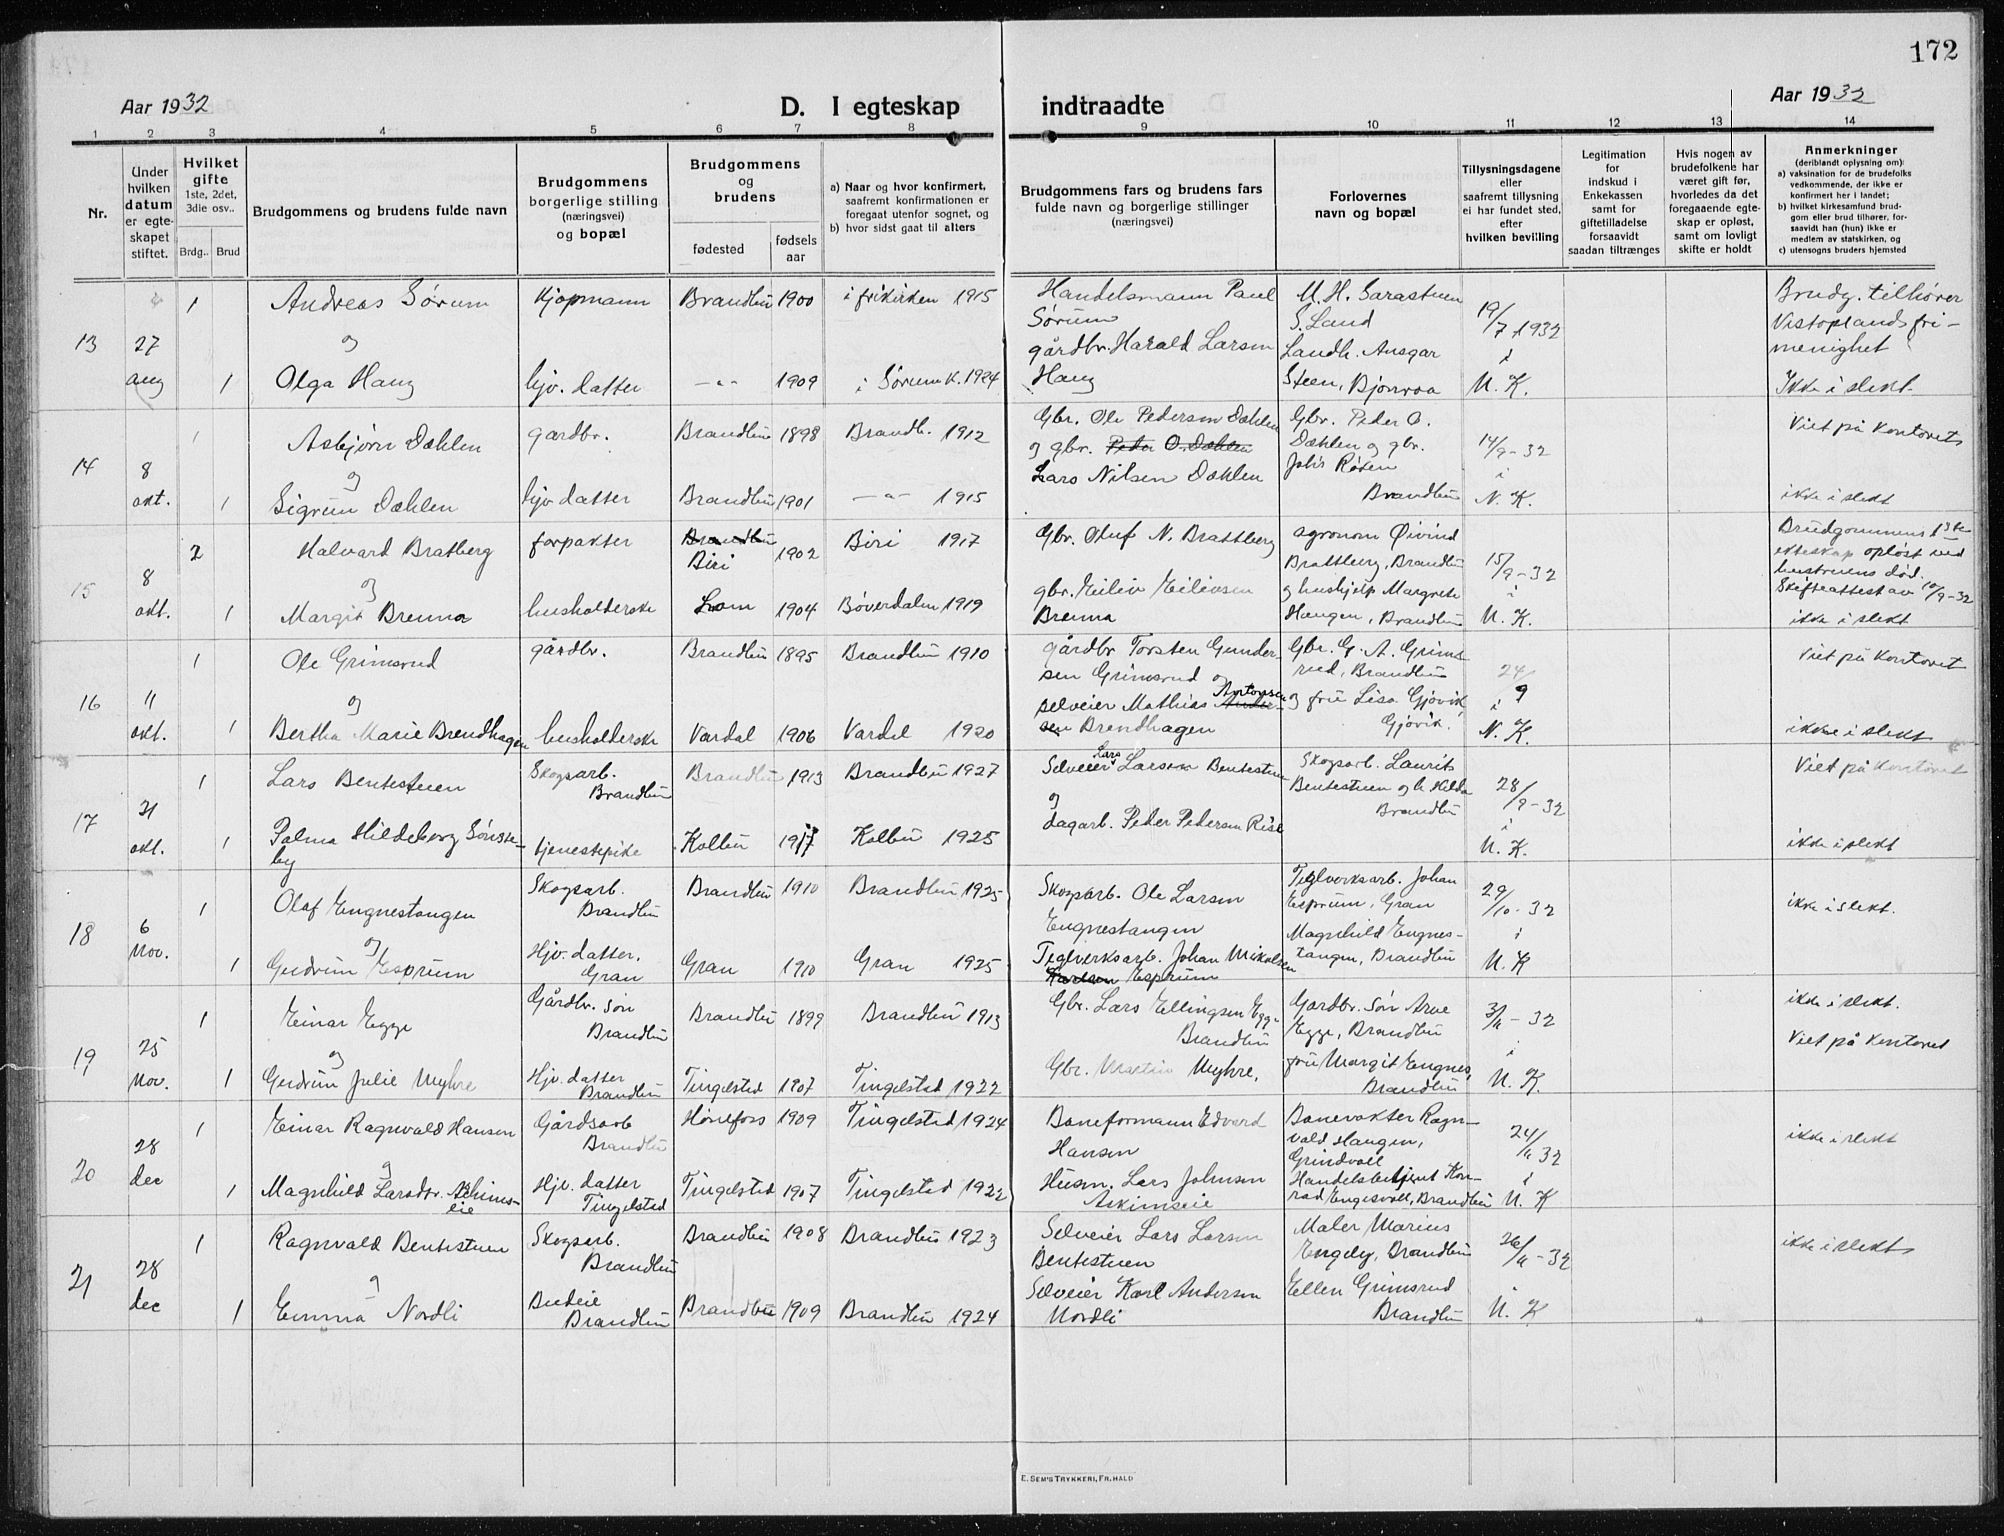 172
Aar 1932
D. I egteskap indtraadte
Aar 1932
1 2 3 4 5 6 7 8 9 10 11 12 13 14
Nr.
Under hvilken datum er egteskapet stiftet.
Hvilket gifte
1ste, 2det, 3die osv..
Brdg.. Brud
Brudgommens og brudens fulde navn
Brudgommens borgerlige stilling (næringsvei) og bopæl
Brudgommens og brudens
fødested
fødsels aar
a) Naar og hvor konfirmert, saafremt konfirmationen er foregaat utenfor sognet, og
b) hvor sidst gaat til alters
Brudgommens fars og brudens fars fulde navn og borgerlige stillinger (næringsvei)
Forlovernes navn og bopæl
Tillysningsdagene eller saafremt tillysning ei har fundet sted, efter hvilken bevilling
Legitimation for indskud i Enkekassen samt for giftetilladelse forsaavidt saadan tiltrænges
Hvis nogen av brudefolkene har været gift før, hvorledes da det foregaaende egteskap er opløst, samt om lovligt skifte er holdt
Anmerkninger
(deriblandt oplysning om)
a) vaksination for de brudefolks vedkommende, der ikke er konfirmert her i landet;
b) hvilket kirkesamfund brudgom eller brud tilhører, forsaavidt han (hun) ikke er medlem av statskirken, og
c) utensogns bruders hjemsted
13 27 aug
1 Andreas Sørum Kjøpmann Brandbu 1900 i frikirken 1915
og
1 Olga Haug hjv. datter -"- 1909 i Sørum K. 1924
Handelsmann Paul
Sørum
gårdbr. Harald Larsen
Haug
M. H. Sarastuen
S. Land
Landh. Ansgar
Steen, Bjonroa
19/7 1932
i
N. K.
Brudg. tilhører
Vestoplands fri-
menighet
Ikke i slekt.
14 8 okt.
1 Asbjørn Dæhlen gardbr. Brandbu 1898 Brandb. 1912
og
1 Sigrun Dæhlen hjv datter Brandbu 1901 -"- 1915
Gbr. Ole Pedersen Dæhlen
og gbr. Peder O. Dæhlen
Lars Nilsen Dæhlen
Gbr. Peder O.
Dæhlen og gbr.
Johs Røsen
Brandbu
14/9-32
i
N. K.
Viet på Kontoret
ikke i slekt
15 8 okt.
2 Halvard Bratberg forpakter Brandbu
Biri 1902 Biri 1917
og
1 Margit Brenna husholderske Lom 1904 Bøverdalen 1919
Gbr. Oluf N. Brattberg
gbr. Eiliv Eilivsen
Brenna
agronom Øivind
Brattberg, Brandbu
og hushjelp Margrete
Haugen, Brandbu
15/9-32
i
N. K.
Brudgommens 1ste
ekteskap opløst ved
hustruens død.
Skifteattest av 10/9-32
ikke i slekt
16 11 okt.
1 Ole Grimsrud gårdbr. Brandbu 1895 Brandbu 1910
og
1 Bertha Marie Brendhagen husholderske Vardal 1906 Vardal 1920
gårdbr Torsten Gunder-
sen Grimsrud og
selveier Mathias Antonsen
Brendhagen
Gbr. G. A. Grims-
rud, Brandbu
og fru Lisa Gjøvik,
Gjøvik.
24/9
i
N. K.
Viet på Kontoret
ikke i slekt
17 21 okt.
1 Lars Bentestuen Skogsarb.
Brandbu Brandbu 1913 Brandbu 1927
1 Palma Hildeborg Sønste-
by tjenestepike Kolbu 1917 Kolbu 1925
Selveier Lars Larsen Bentestuen
og
dagarb. Peder Pedersen Rise
Skogsarb. Laurits
Bentestuen og h. Hilda
Brandbu
28/9-32
i
N. K.
Viet på Kontoret
ikke i slekt
18 6 nov.
1 Olaf Engnestangen Skogsarb.
Brandbu Brandbu 1910 Brandbu 1925
og
1 Gudrun Esprum Hjv. datter,
Gran Gran 1910 Gran 1925
Skogsarb. Ole Larsen
Engnestangen
Teglverksarb. Johan Mikalsen
Karlsen Esprum
Teglverksarb. Johan
Esprum, Gran
Magnhild Engnes-
tangen, Brandbu
29/10-32
i
N. K
ikke i slekt.
19 25 nov.
1 Einar Egge Gårdbr. søn
Brandbu Brandbu 1899 Brandbu 1913
og
1 Gudrun Julie Myhre Hjv. datter
Brandbu Tingelstad 1907 Tingelstad 1922
Gbr. Lars Ellingsen Egge
Brandbu
Gbr. Martin Myhre,
Gardbr. Søn Arve
Egge, Brandbu
fru Margit Engnes,
Brandbu
3/11-32
i
N. K.
ikke i slekt.
Viet på Kontoret
20 28 dec
1 Einar Ragnvald Hansen Gårdsarb
Brandbu Hønefoss 1909 Tingelstad 1924
og
1 Magnhild Larsdtr. Askims-
eie Hjv. datter
Tingelstad Tingelstad 1907 Tingelstad 1922
Baneformann Edvard
Hansen
Husm. Lars Johnsen
Askimseie
Banevakter Ragn-
vald Haugen,
Grindvoll
Handelsbetjent Kon-
rad Engesvoll, Brandbu
24/11 32
i
N. K
ikke i slekt
21 28 dec
1 Ragnvald Bentestuen Skogsarb.
Brandbu Brandbu 1908 Brandbu 1923
og
1 Emma Nordli Budeie
Brandbu Brandbu 1909 Brandbu 1924
Selveier Lars Larsen
Bentestuen
Selveier Karl Andersen
Nordli
Maler Marius
Engeby, Brandbu
Ellen Grimsrud
Brandbu
26/11-32
N. K
ikke i slekt
E. SEM'S TRYKKERI, FR.HALD